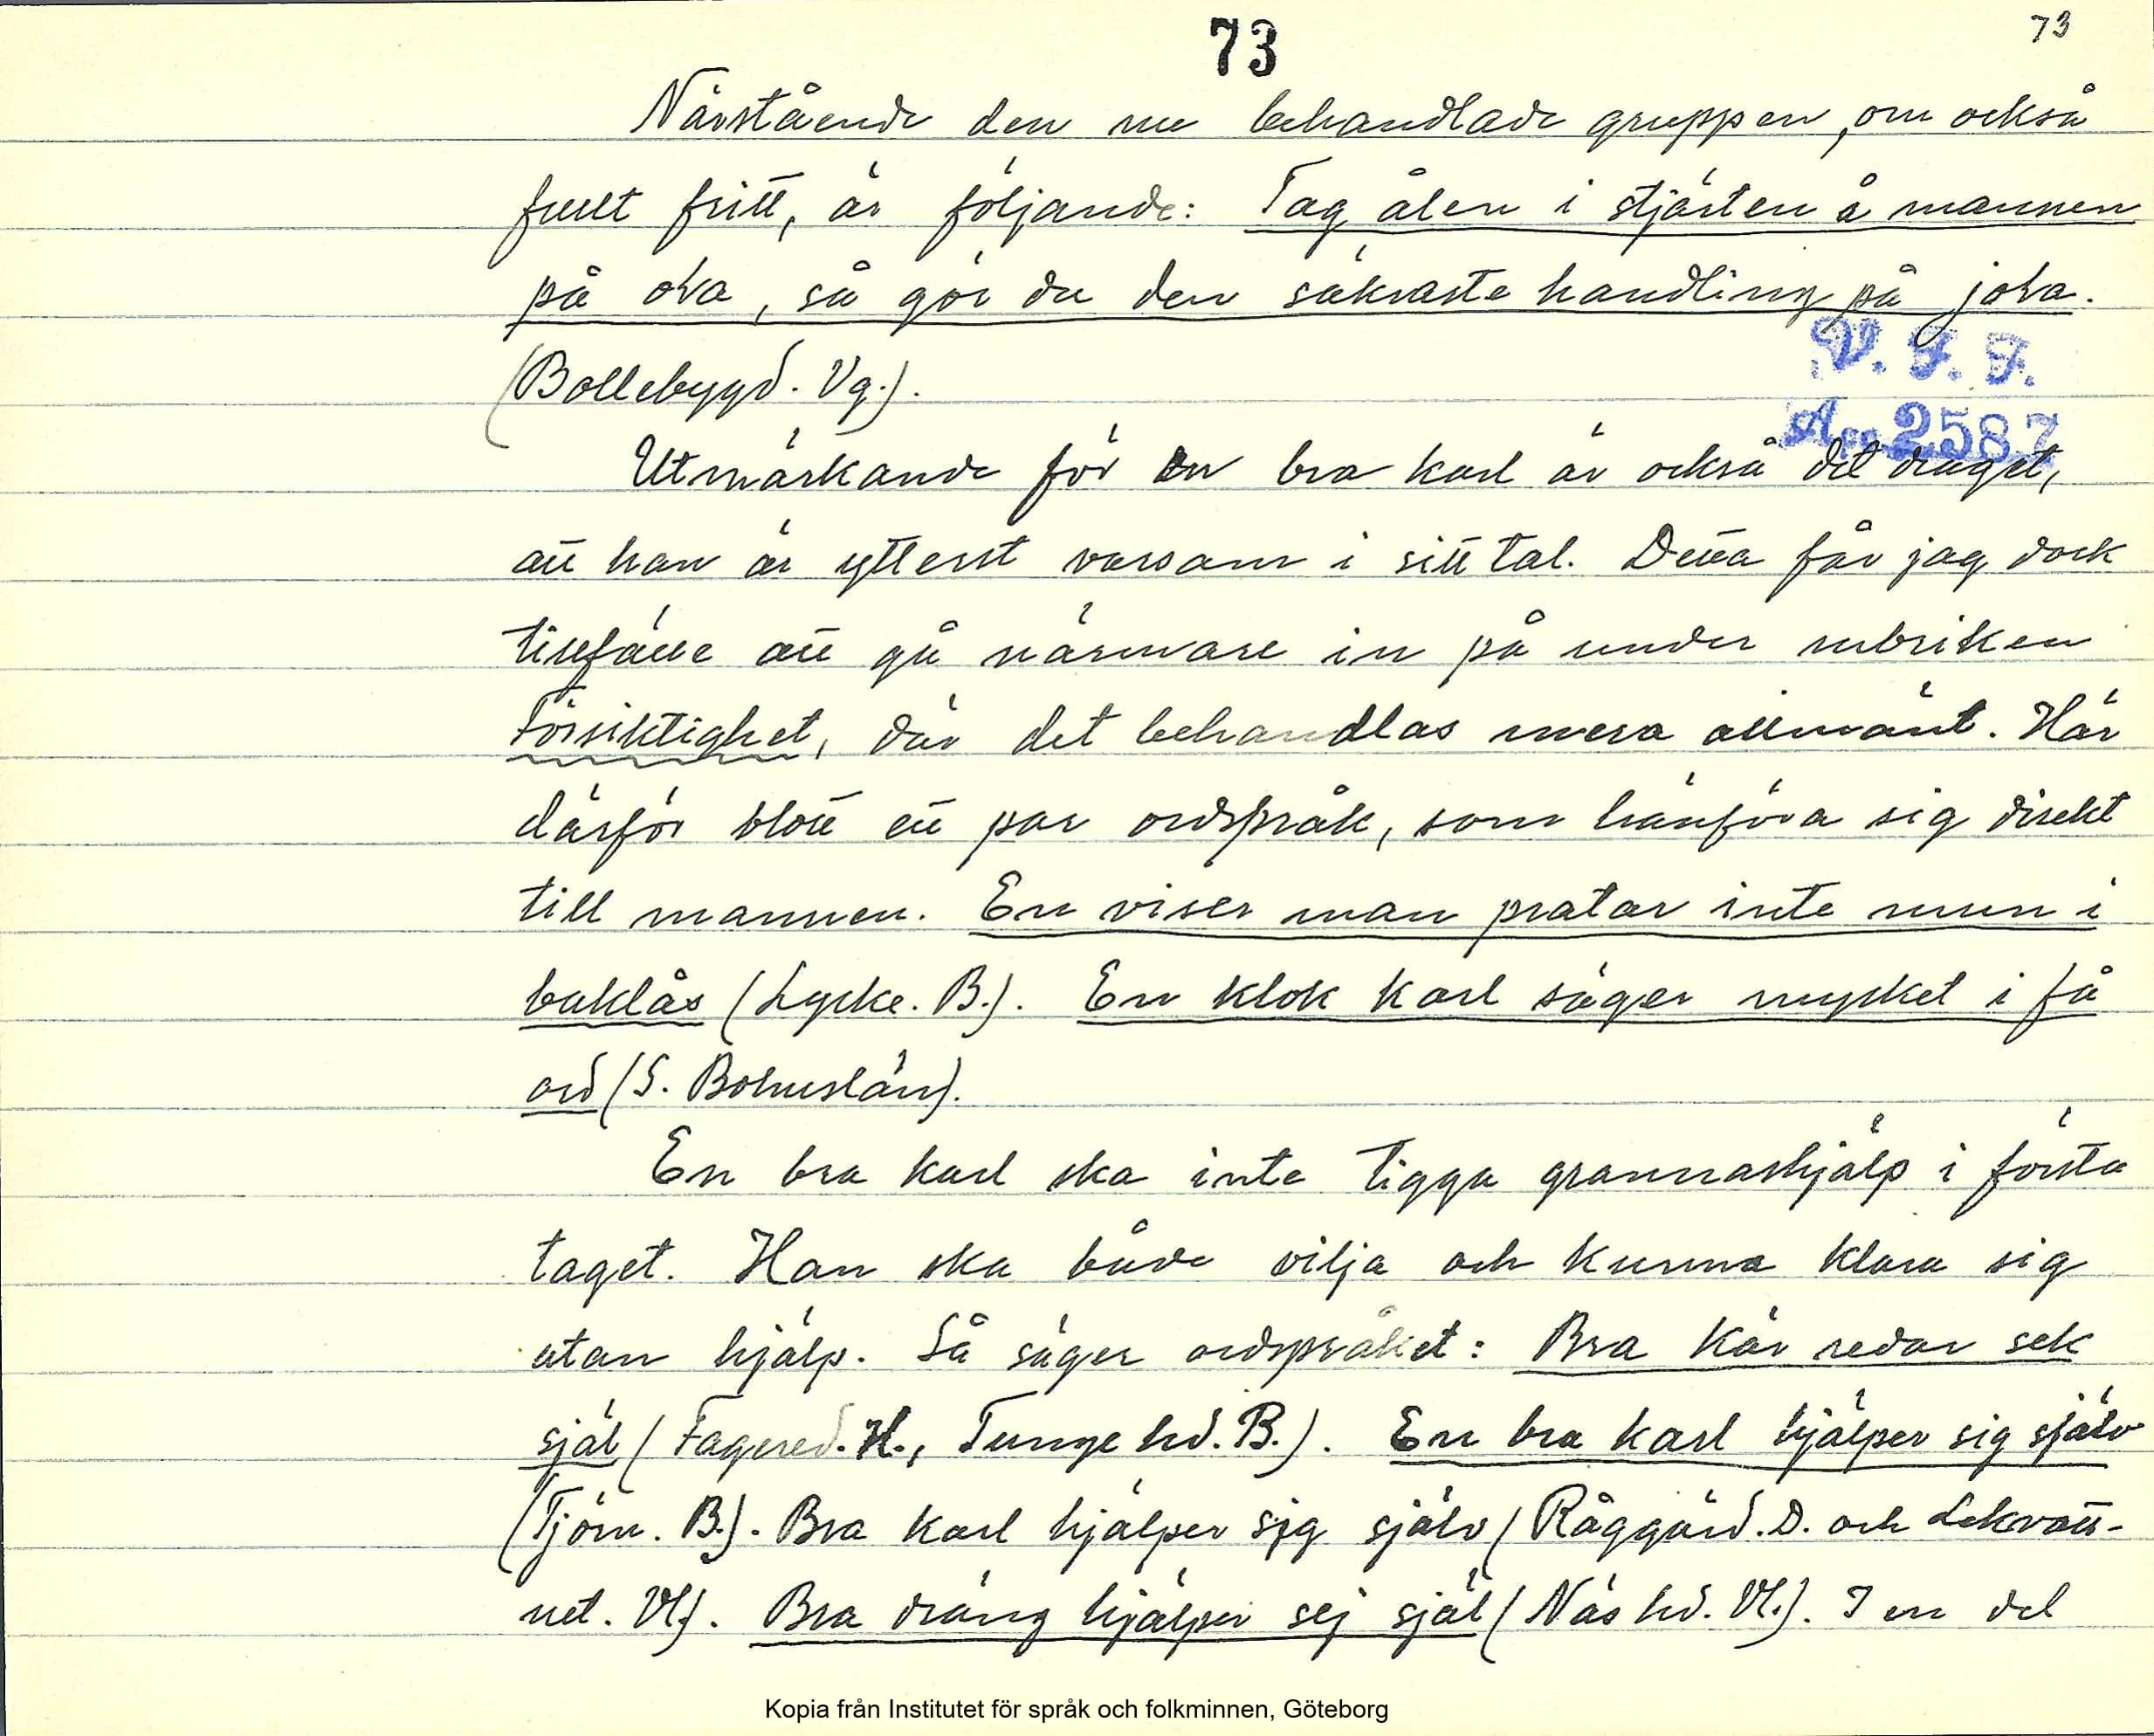 73
73
Närstående den nu behandlade gruppen, om också
fullt fritt, är följande: Tag ålen i stjärten å mannen
på ola, så gör du den säkraste handling på jola.
V. F. F.
(Bollebygd. Vg.).
Acc 2587
Utmärkande för en bra karl är också det draget,
att han är ytterst varsam i sitt tal. Detta får jag dock
tillfälle att gå närmare in på under rubriken
Försiktighet, där det behandlas mera allmänt. Här
därför blott ett par ordspråk, som hänföra sig direkt
till mannen. En viser man pratar inte mun i
baklås (Lycke. B.). En klok karl säger mycket i få
ord (S. Bohuslän).
En bra karl ska inte tigga grannashjälp i första
taget. Han ska både vilja och kunna klara sig
utan hjälp. Så säger ordspråket: Bra kär redar sek
själ (Fagered. H., Tunge hd. B.). En bra karl hjälper sig själv
(Tjörn. B.). Bra karl hjälper sig själv (Råggärd. D. och Lekvatt-
net. Vl.). Bra dräng hjälper sej själ (Näs hd. Vl.). I en del
Kopia från Institutet för språk och folkminnen, Göteborg